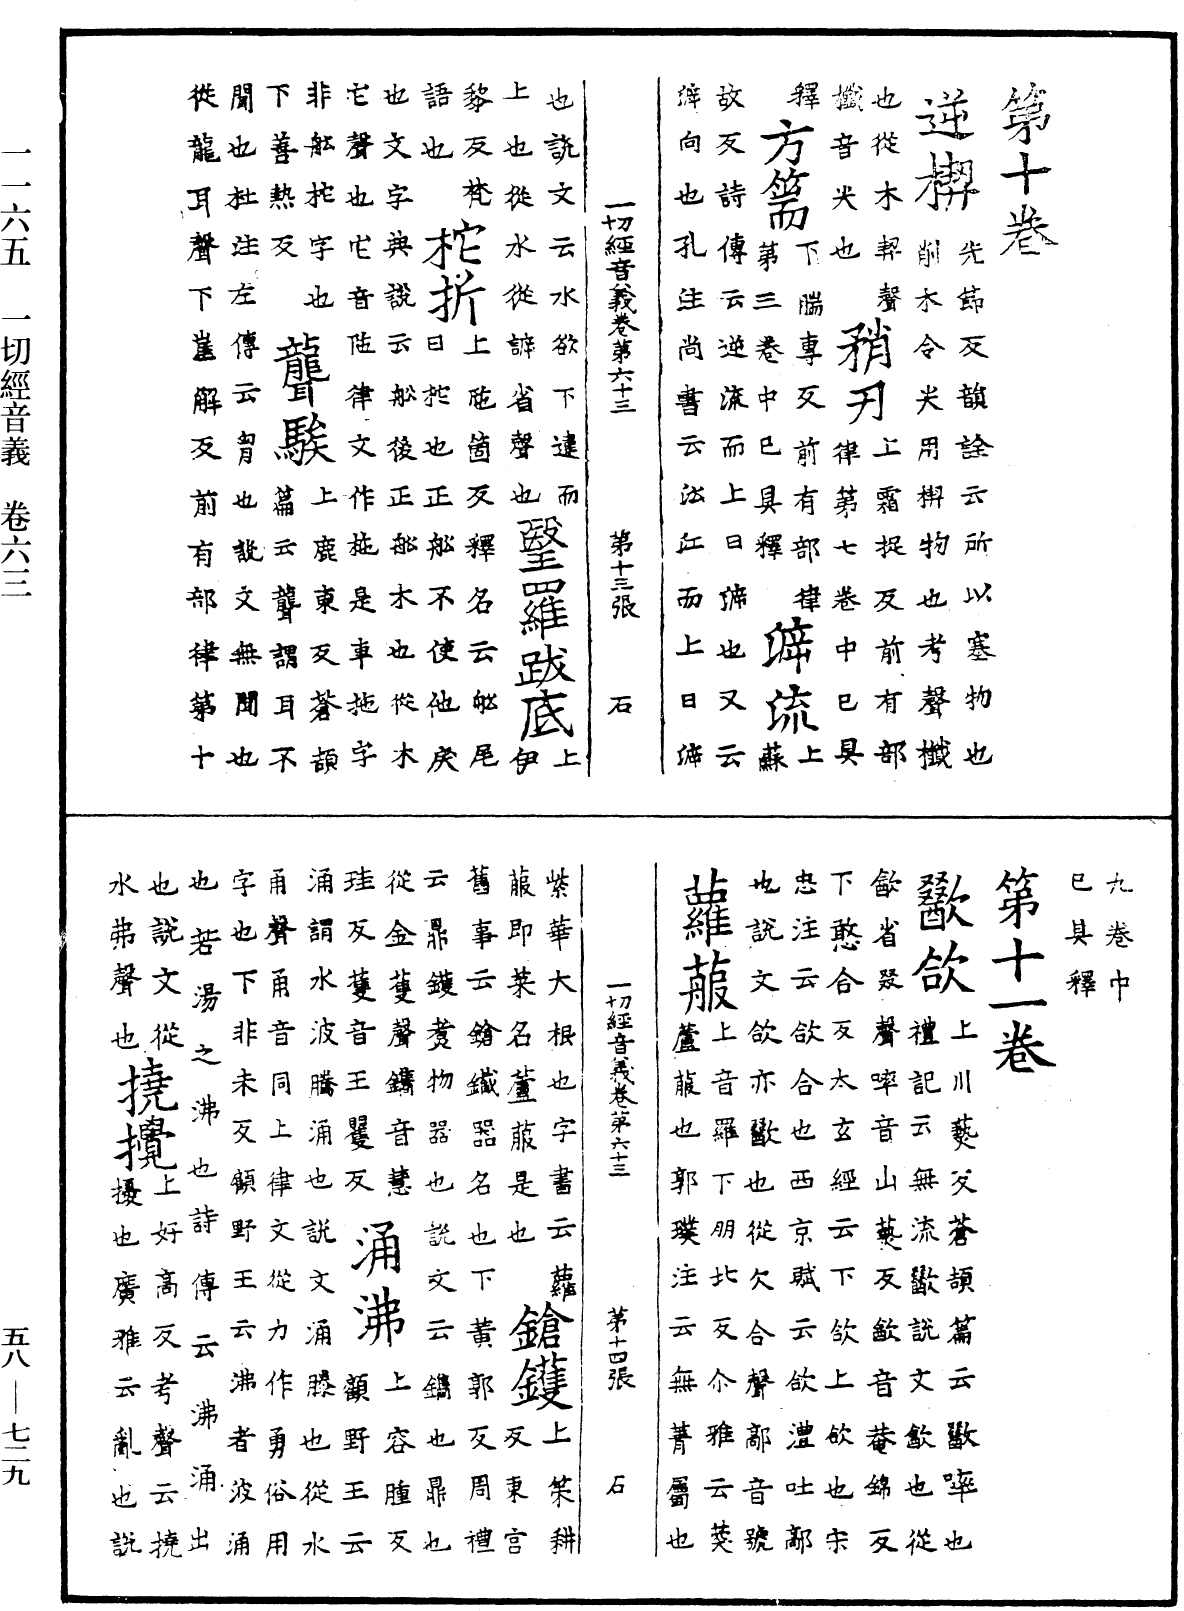 一一六五　一切經音義　卷六三
五八—七二九
第十卷
逆楔
先節反韻詮云所以塞物也
削木令尖用楔物也考聲櫼
也從木契聲
櫼音尖也
矟刃
上霜捉反前有部
律第七卷中已具
釋
方篅
下腨專反前有部律
第三卷中已具釋
泝流
上蘇
故反詩傳云逆流而上曰泝也又云
泝向也孔注尚書云泝江而上曰泝
一切經音義卷第六十三　第十三張　石
也說文云水欲下違而
上也從水從諦省聲也
瑿羅跋底
上伊
黎反梵
語也
柁折
上陁箇反釋名云船尾
曰柁也正船不使他戾
也文字典說云船後正船木也從木
它聲也它音陁律文作拖是車拖字
非船柁字也
下善熱反
聾騃
上鹿東反蒼頡
篇云聾謂耳不
聞也杜注左傳云聾也說文無聞也
從龍耳聲下崖解反前有部律第十
九卷中
已具釋
第十一卷
歠欱
上川爇反蒼頡篇云歠啐也
禮記云無流歠說文歠也從
㱃省叕聲啐音山爇反㱃音菴錦反
下憨合反太玄經云下欱上欱也宋
忠注云欱合也西京賦云欱澧吐鄗
也說文欱亦歠也從欠合聲鄗音號
蘿菔
上音羅下朋北反尒雅云葖
蘆菔也郭璞注云無菁屬也
一切經音義卷第六十三　第十四張　石
紫華大根也字書云蘿
菔即菜名蘆菔是也
鎗鑊
上策耕
反東宮
舊事云鎗鐵器名也下黃郭反周禮
云鼎鑊煑物器也說文云鑴也鼎也
從金蒦聲鑴音慧
珪反蒦音王矍反
涌沸
上容腫反
顧野王云
涌謂水波騰涌也說文涌滕也從水
甬聲甬音同上律文從力作勇俗用
字也下非未反顧野王云沸者波涌
也若湯之沸也詩傳云沸涌出
也說文從
水弗聲也
撓攪
上好高反考聲云撓
擾也廣雅云亂也說